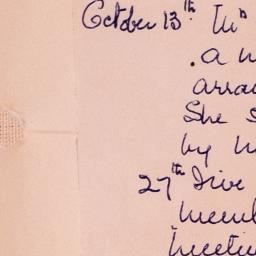 October 13th
. a m
arra
She s
by m
27th Five
memb
meetin